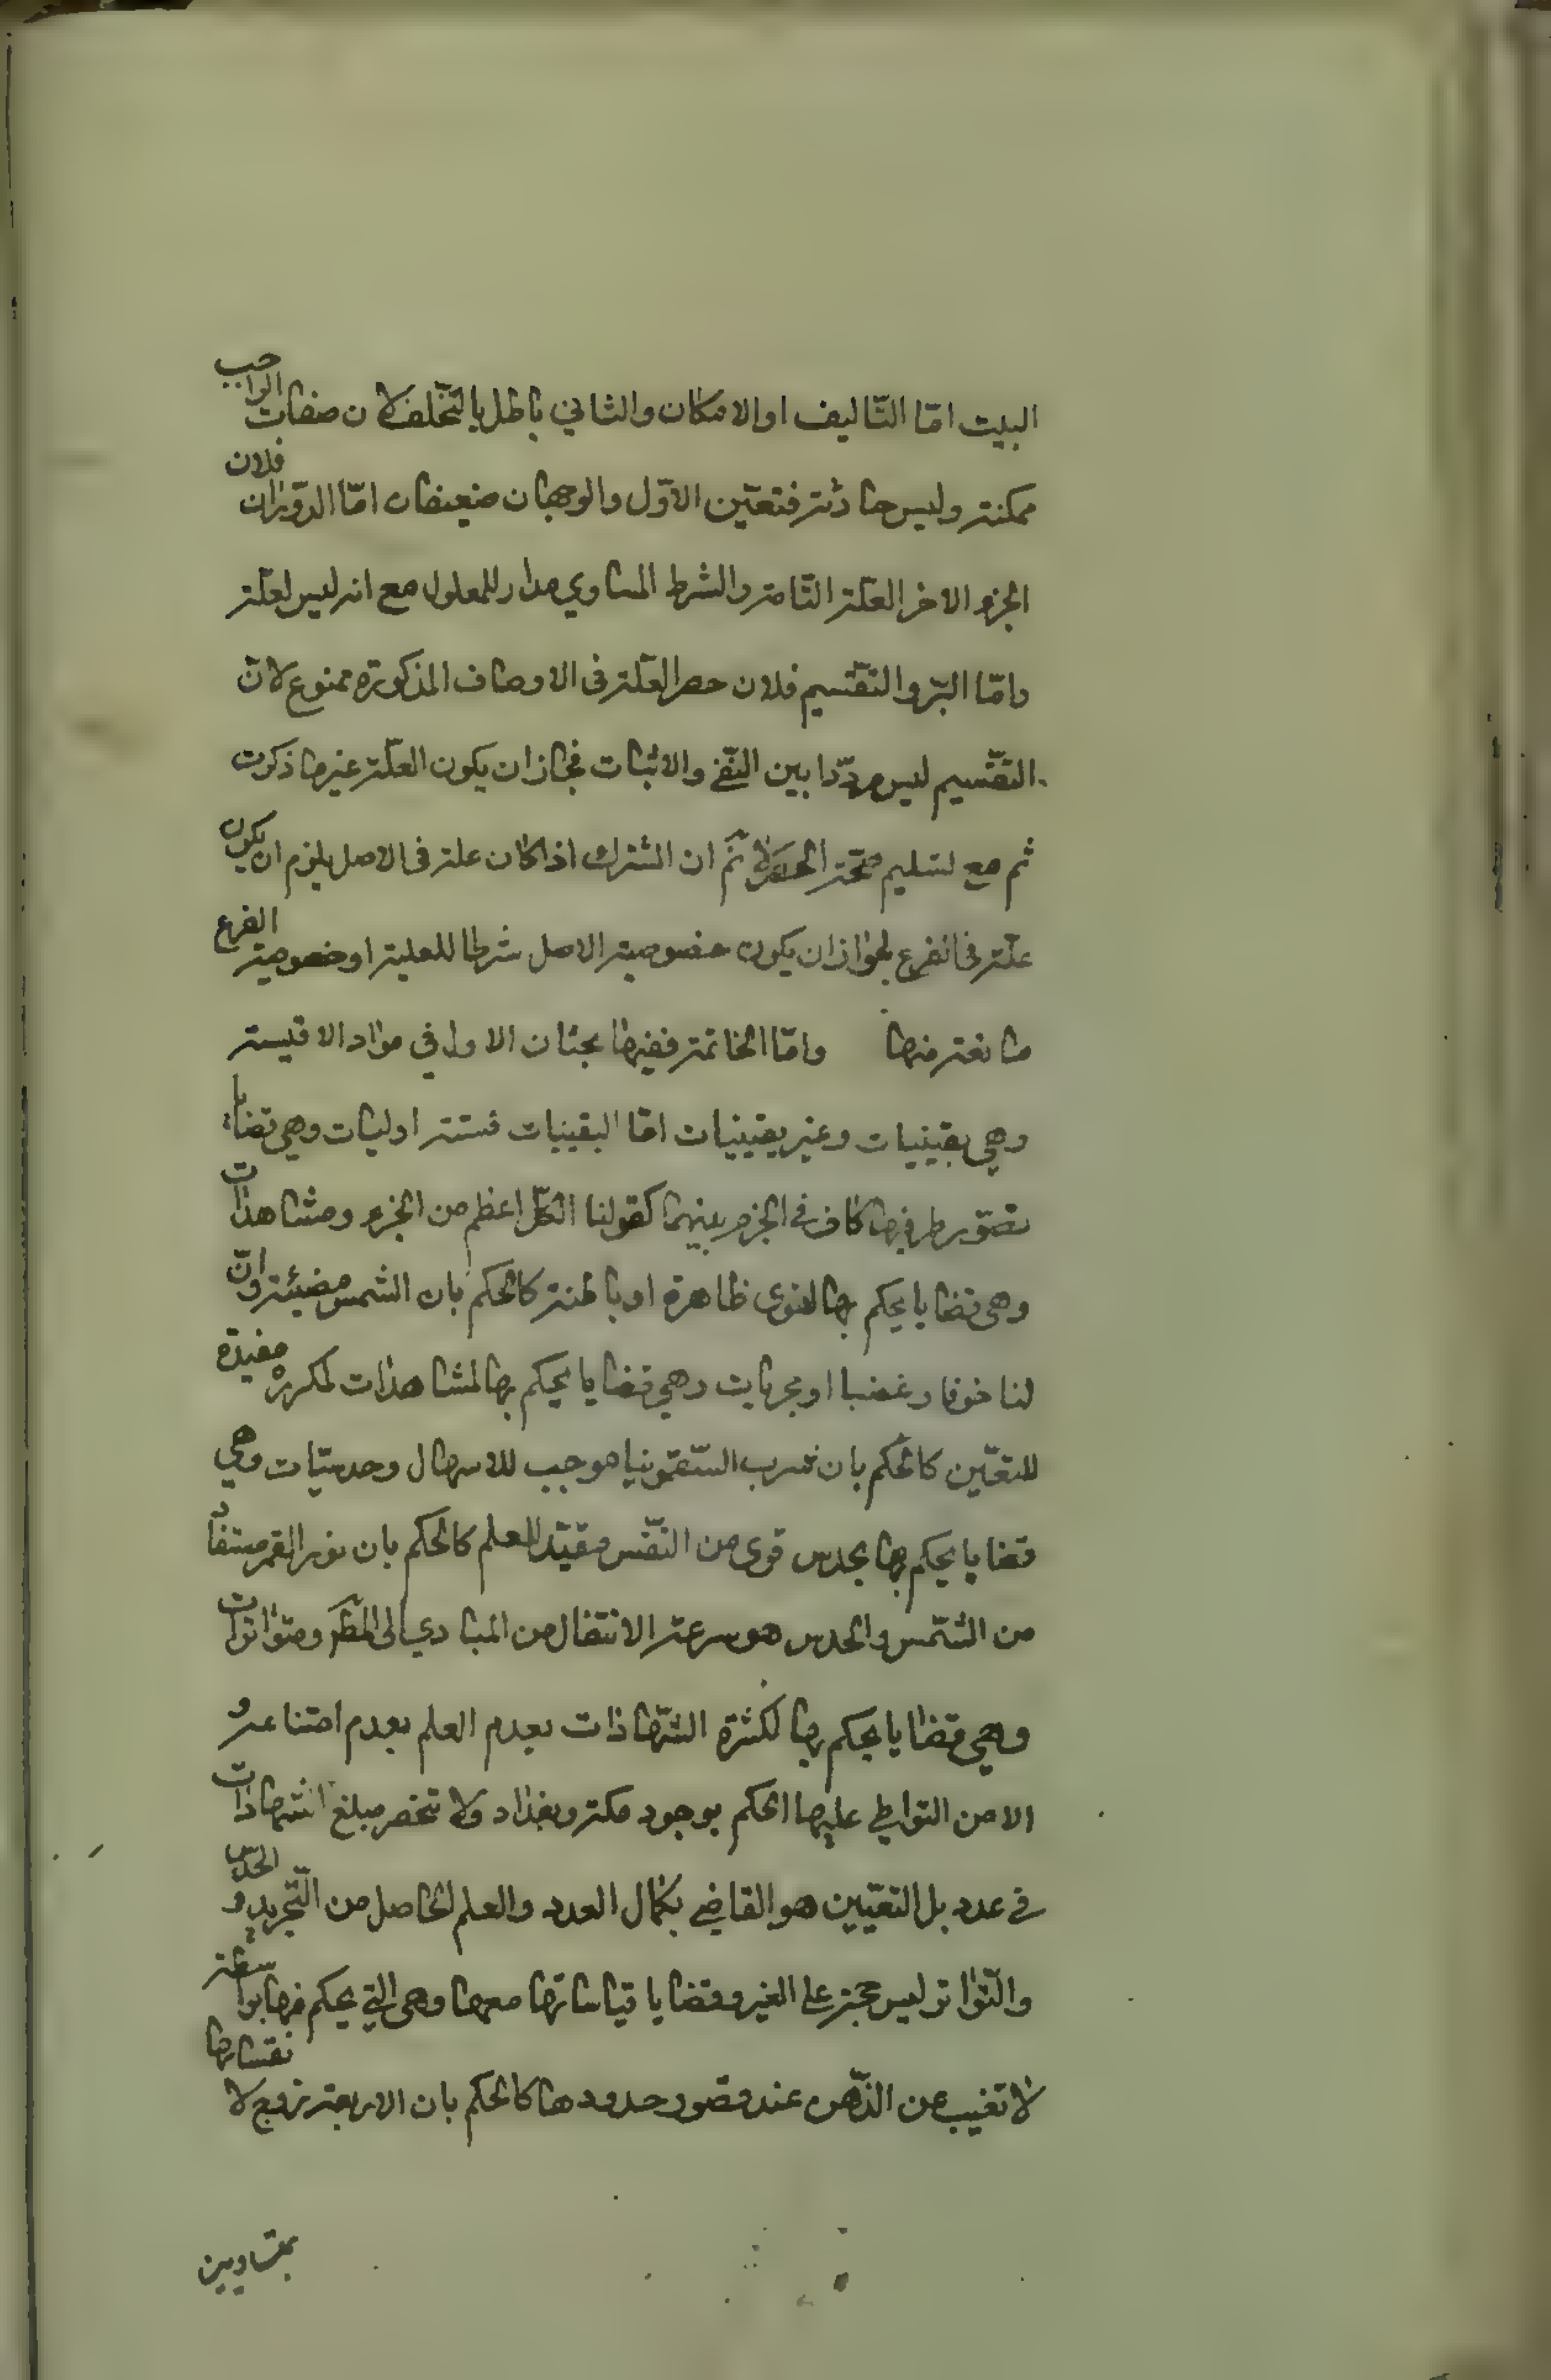 البيت امّا التّاليف او الامكان والثاني باطل بالتّخلف لان صفات الواجب
ممكنة وليس حادثة فتعيّن الاوّل والوجهان ضعيفان امّا الدّوران فلان
الجزء الاخر العلّة التّامة والشرط المساوي مدار للمعلول مع انه ليس لعلّة
وامّا السّبر والتقسيم فلان حصر العلّة فى الاوصاف المذكورة ممنوع لانّ
التقّسيم ليس مردّدا بين النّفى والاثبات فجاز ان يكون العلّة غير ما ذكرت
ثم مع تسليم صحّة الحصر لا نمّ ان المشترك اذا كان علة فى الاصل يلزم ان يكون
علّة فى الفرع لجواز ان يكون خصوصية الاصل شرطا للعلية او خصوصية الفرع
مانعة منها وامّا الخاتمة ففيها بحثان الاول في مواد الاقيسة
وهي يقينيات وغير يقينيات امّا اليقينيات فستة اوليات وهي قضايا
تصّور طرفيها كاف فى الجزم بينهما كقولنا الكلّ اعظم من الجزء ومشاهدات
وهى قضايا يحكم بها لقوى ظاهرة او باطنة كالحكم بان الشمس مضيئة وانّ
لنا خوفا وغضبا او مجربات وهي قضايا يحكم بها لمشاهدات لمكررة مفيدة
لليقّين كالحكم بان شرب السّقمونيا موجب للاسهال وحدسيّات وهي
قضايا يحكم بها بحدس قوى من النّفس مقيّد للعلم كالحكم بان نور القمر مستفاد
من الشّمس والحدس هو سرعة الانتقال من المبادي الى المطّ ومتواترات
وهي قضايا يحكم بها لكثرة الشّهادات بعدم العلم بعدم امتناعه و
الامن التواطى عليها الحكم بوجود مكة وبغداد ولا تنحصر مبلغ الشهادات
فى عدد بل اليقّين هو القاضي بكمال العدد والعلم لحاصل من التّجربه و الحدّس
والتّواتر ليس حجة على الغير وقضايا قياساتها معها وهى التي يحكم فيها بواسطة
لا تغيب عن الذّهن عند قصور حدودها كالحكم بان الاربعة زوج لا نقسامها
بمتساويين